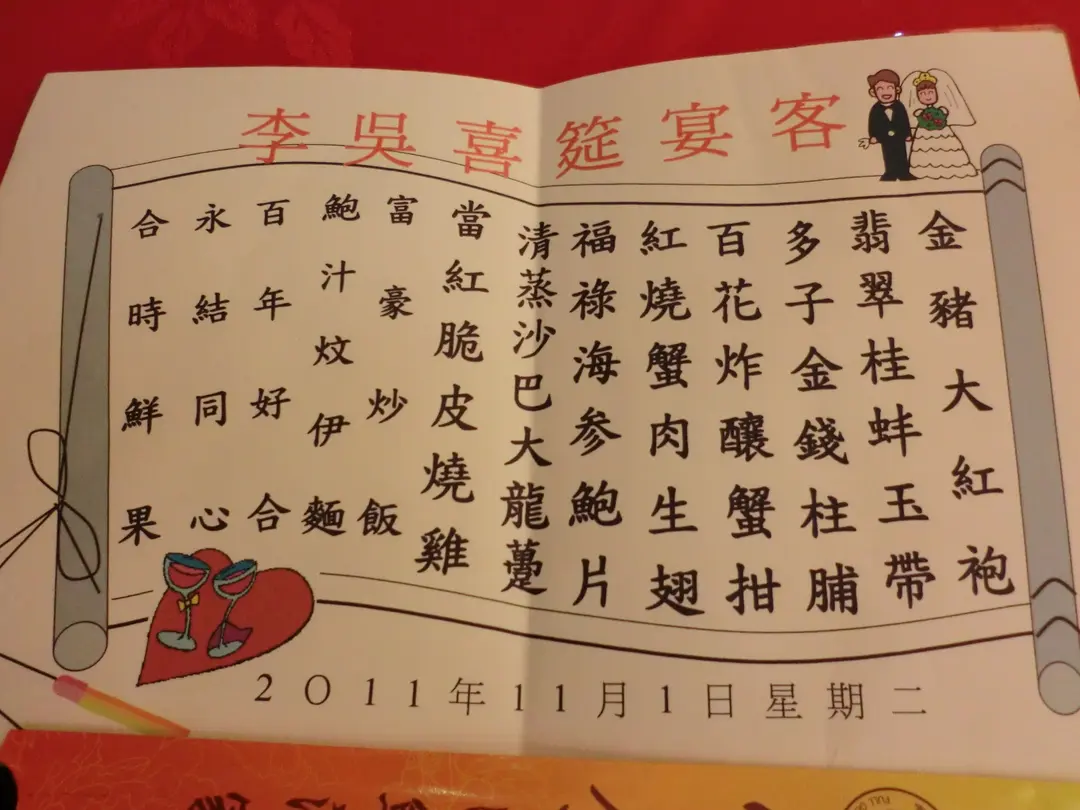 李吳喜筵宴客
金豬大紅袍
翡翠桂蚌玉帶
多子金錢柱脯
百花炸釀蟹拑
紅燒蟹肉生翅
福祿海參鮑片
清蒸沙巴大龍躉
當紅脆皮燒雞
富豪炒飯
鮑汁炆伊麵
百年好合
永結同心
合時鮮果
2011年11月1日星期二